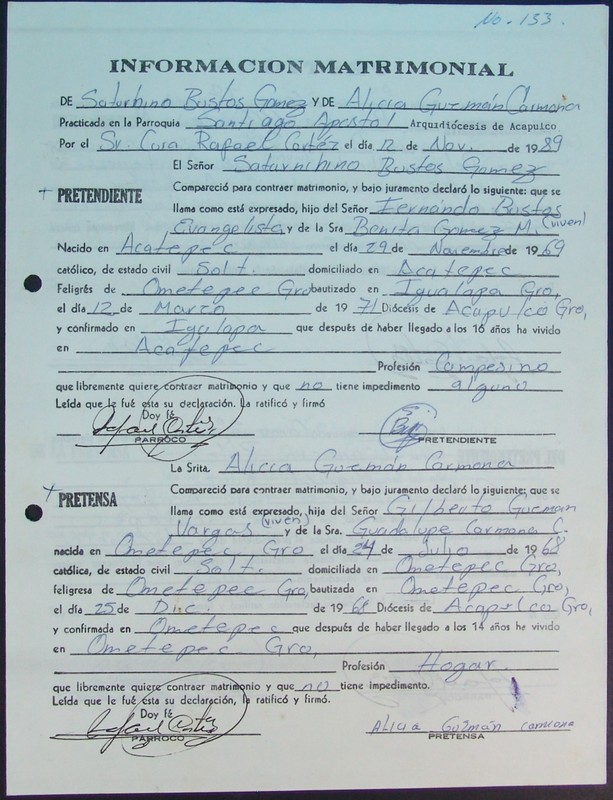 No. 133.
INFORMACION MATRIMONIAL
DE Saturnino Bustos Gomez Y DE Alicia Guzmán Carmona
Practicada en la Parroquia Santiago Apostol Arquidiócesis de Acapulco
Por el Sr. Cura Rafael Cortéz el día 12 de Nov. de 1989
El Señor Saturnihino Bustos Gomez
+ PRETENDIENTE
Compareció para contraer matrimonio, y bajo juramento declaró lo siguiente: que se
llama como está expresado, hijo del Señor Fernando Bustos
Evangelista y de la Sra Benita Gomez M. (viven)
Nacido en Acatepec el día 29 de Noviembre de 1969
católico, de estado civil Solt. domiciliado en Acatepec
Feligrés de Ometepec Gro bautizado en Igualapa Gro,
el día 12 de Marzo de 1971 Diócesis de Acapulco Gro,
y confirmado en Igualapa que después de haber llegado a los 16 años ha vivido
en Acatepec
Profesión Campesino
que libremente quiere contraer matrimonio y que no tiene impedimento alguno
Leída que le fué esta su declaración. La ratificó y firmó
Doy fé
Rafael Cortéz
PARROCO
PRETENDIENTE
La Srita. Alicia Guzmán Carmona
+ PRETENSA
Compareció para contraer matrimonio, y bajo juramento declaró lo siguiente: que se
llama como está expresado, hija del Señor Gilberto Guzman
Vargas (viven) y de la Sra. Guadalupe Carmona C.
nacida en Ometepec, Gro el día 24 de Julio de 1968
católica, de estado civil Solt. domiciliada en Ometepec Gro,
feligresa de Ometepec Gro, bautizada en Ometepec Gro,
el día 25 de Dic. de 1968 Diócesis de Acapulco Gro,
y confirmada en Ometepec que después de haber llegado a los 14 años ha vivido
en Ometepec Gro,
Profesión Hogar.
que libremente quiere contraer matrimonio y que no tiene impedimento.
Leída que le fué esta su declaración, la ratificó y firmó.
Doy fé
Rafael Cortéz
PARROCO
Alicia Guzmán Carmona
PRETENSA